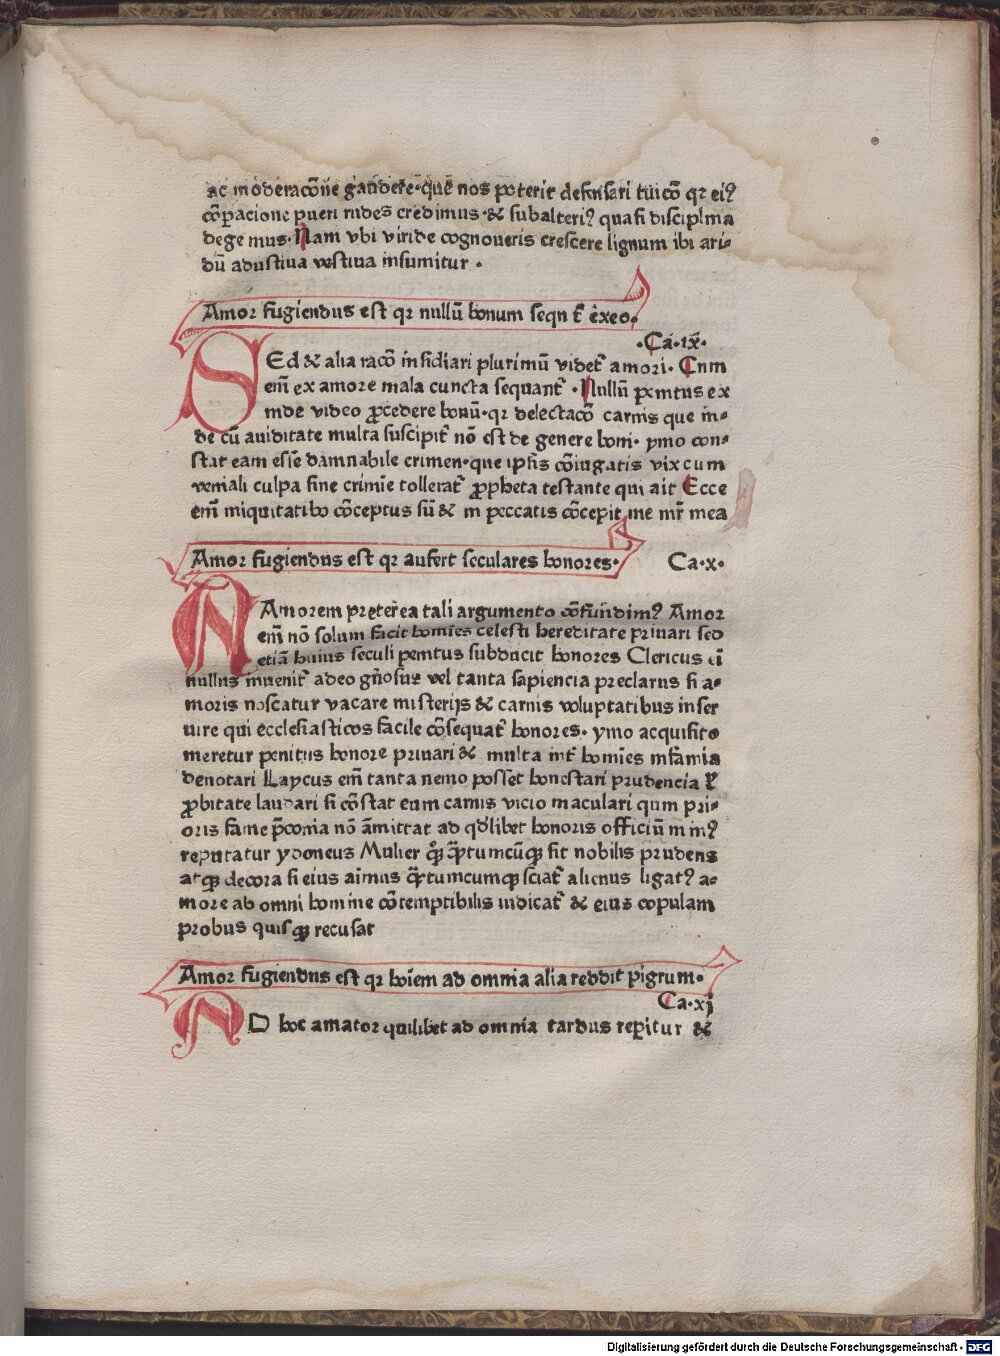 ac moderacōne gaudere·quē nos poterit defensari tuicō qꝛ eiꝰ
cōpacione pueri rudes credimus·& subalteriꝰ quasi disciplina
dege mus·Nam vbi viride cognoueris crescere lignum ibi ari-
dū adustiua vestiua insumitur·
Amor fugiendus est qꝛ nullū bonum seqn t̄ ēxeo·
·Ca·ix·
SEd & alia racō insidiari plurimū videt̄ amori· Cum
em̄ ex amore mala cuncta sequant̄ ·Nullū penitus ex
inde video ꝓcedere bonū·qꝛ delectacō carnis que in-
de cū auiditate multa suscipit̄ nō est de genere boni· ymo con-
stat eam esse damnabile crimen·que ipsis cōiugatis vix cum
veniali culpa sine crimīe tollerat̄ ꝓpheta testante qui ait Ecce
em̄ iniquitatibō cōceptus sū & in peccatis cōcepit me mr̄ mea
Amor fugiendus est qꝛ aufert seculares honores·
Ca·x·
Amorem preterea tali argumento cōfundimꝰ Amor
em̄ nō solum facit homīes celesti hereditate priuari sed
etiā huius seculi penitus subducit honores Clericus eī
nullus inuenit̄ adeo gn̄osus vel tanta sapiencia preclarus si a-
moris noscatur vacare misterijs & carnis voluptatibus inser
uire qui ecclesiasticos facile cōsequat̄ honores· ymo acquisitō
meretur penitus honore priuari & multa int̄ homīes infamia
denotari Laycus em̄ tanta nemo posset honestari prudencia ł
ꝓbitate laudari si cōstat eum carnis vicio maculari qum pri-
oris fame p̄conia nō āmittat ad qd̄libet honoris officiū minꝰ
reputatur ydoneus Mulier qͣꝫ qͣtumcūqꝫ sit nobilis prudens
atqꝫ decora si eius aīmus qͣtumcumqꝫ sciat̄ alienus ligatꝰ a-
more ab omni homine cōtemptibilis iudicat̄ & eius copulam
probus quisqꝫ recusat
Amor fugiendus est qꝛ hoīem ad omnia alia reddit pigrum·
Ca·xj
AD hoc amator quilibet ad omnia tardus reperitur &
Digitalisierung gefördert durch die Deutsche Forschungsgemeinschaft - DFG